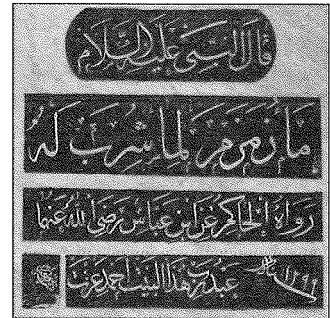 قال النبي عليه السلام
ماء زمزم لما شرب له
رواه الحاكم عن ابن عباس رضي الله عنهما
عبد رب هذا البيت احمد عزت